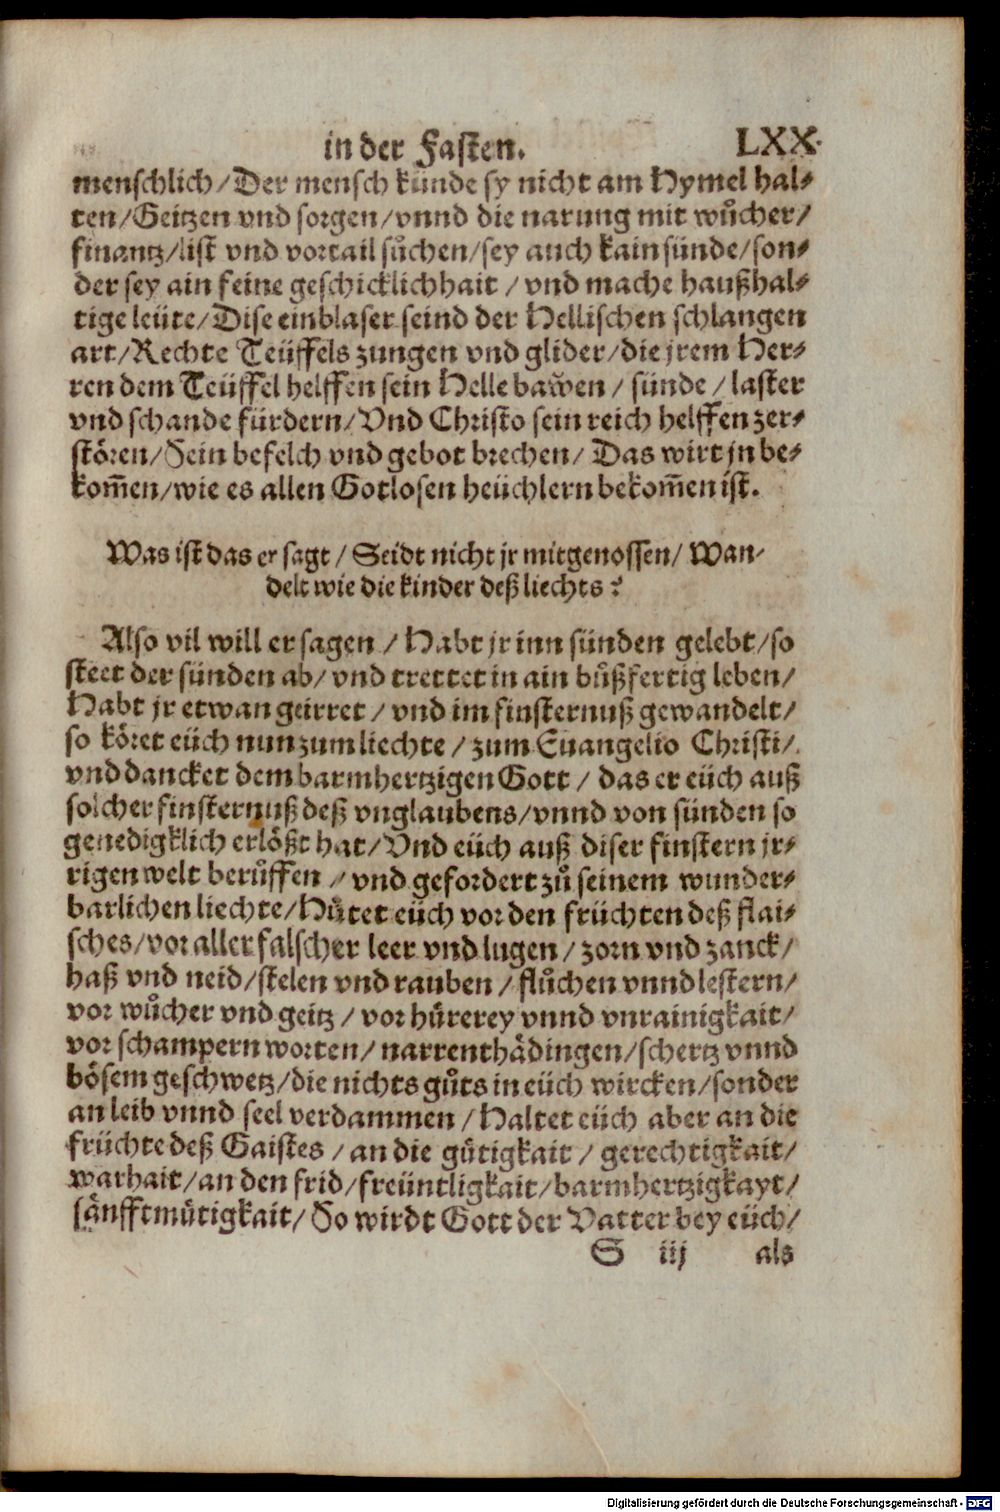 in der Fasten. LXX.
menschlich/ Der mensch künde sy nicht am Hymel hal-
ten/ Geitzen vnd sorgen/ vnnd die narung mit wůcher/
finantz/ list vnd vortail sůchen/ sey auch kain sünde/ son-
der sey ain feine geschicklichhait / vnd mache haußhal-
tige leüte/ Dise einblaser seind der Hellischen schlangen
art/ Rechte Teüffels zungen vnd glider/ die jrem Her-
ren dem Teüffel helffen sein Helle bawen / sünde / laster
vnd schande fürdern/ Vnd Christo sein reich helffen zer-
stören/ Sein befelch vnd gebot brechen/ Das wirt jn be-
kom̃en/ wie es allen Gotlosen heüchlern bekom̃en ist.
Was ist das er sagt / Seidt nicht jr mitgenossen/ Wan-
delt wie die kinder deß liechts?
Also vil will er sagen / Habt jr inn sünden gelebt/ so
steet der sünden ab/ vnd trettet in ain bůßfertig leben/
Habt jr etwan geirret / vnd im finsternuß gewandelt/
so köret eüch nun zum liechte / zum Euangelio Christi/
vnd dancket dem barmhertzigen Gott / das er eüch auß
solcher finsternuß deß vnglaubens/ vnnd von sünden so
genedigklich erlößt hat/ Vnd eüch auß diser finstern jr-
rigen welt berůffen / vnd gefordert zů seinem wunder-
barlichen liechte/ Hütet eüch vor den früchten deß flai-
sches/ vor aller falscher leer vnd lugen / zorn vnd zanck/
haß vnd neid/ stelen vnd rauben / flůchen vnnd lestern/
vor wůcher vnd geitz / vor hůrerey vnnd vnrainigkait/
vor schampern worten/ narrenthädingen/ schertz vnnd
bösem geschwetz/ die nichts gůts in eüch wircken/ sonder
an leib vnnd seel verdammen / Haltet eüch aber an die
früchte deß Gaistes / an die gütigkait / gerechtigkait/
warhait/ an den frid/ freüntligkait/ barmhertzigkayt/
sänfftmütigkait/ So wirdt Gott der Vatter bey eüch/
S iij als
Digitalisierung gefördert durch die Deutsche Forschungsgemeinschaft - DFG